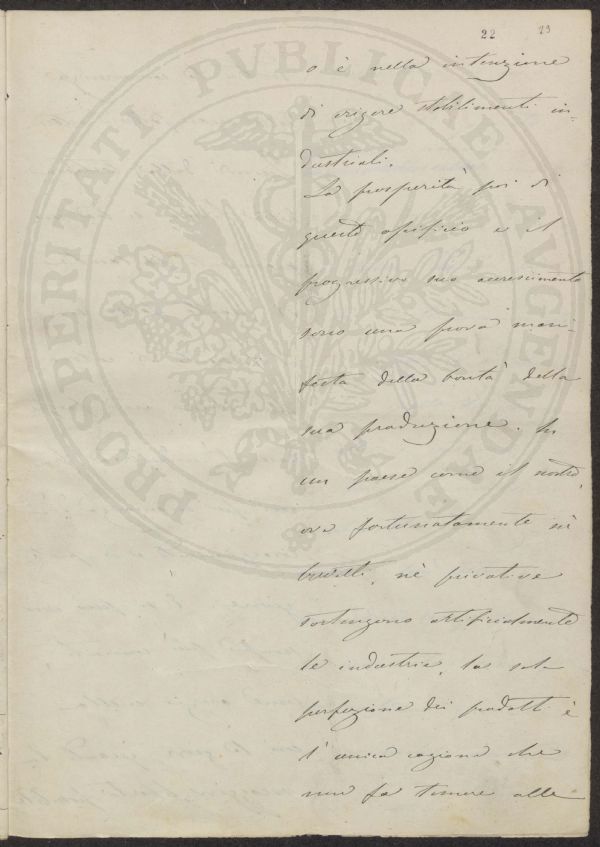 22 23
o è nella intenzione
di erigere stabilimenti in=
dustriali.
La prosperità poi di
questo opificio e il
progressivo suo accrescimento
sono una prova mani=
festa della bontà della
sua produzione. In
un paese come il nostro,
ove fortunatamente nè
brevetti, nè privative
sostengono artificialmente
le industrie, la sola
perfezione dei prodotti è
l'unica cagione, che
non fa temere alle
PROSPERITATI PVBLICAE AVGENDAE